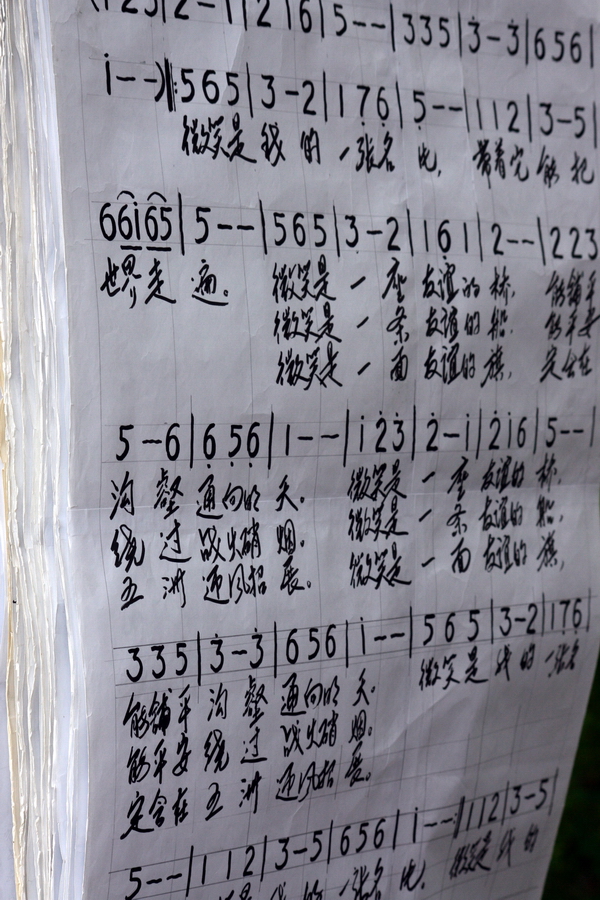 1 2 5 | 2 - 1 | 2 1 6 | 5 - - | 3 3 5 | 3̇ - 3̇ | 6 5 6 |
i̇ - - ) ‖: 5 6 5 | 3 - 2 | 1 7̣ 6̣ | 5̣ - - | 1 1 2 | 3 - 5 |
微笑是 我 的 一张名 片, 带着它 能 把
6 6 i̇ 6 5 | 5 - - | 5 6 5 | 3 - 2 | 1 6̣ 1 | 2 - - | 2 2 3
世界走 遍。 微笑是 一 座 友谊的 桥, 能铺平
微笑是 一 条 友谊的 船, 能平安
微笑是 一 面 友谊的 旗, 定会在
5 - 6 | 6̣ 5̣ 6̣ | 1 - - | i̇ 2̇ 3̇ | 2̇ - i̇ | 2̇ i̇ 6 | 5 - - |
沟 壑 通向明 天。 微笑是 一 座 友谊的 桥,
绕 过 战火硝 烟。 微笑是 一 条 友谊的 船,
五 洲 迎风招 展。 微笑是 一 面 友谊的 旗,
3 3 5 | 3̇ - 3̇ | 6 5 6 | i̇ - - | 5 6 5 | 3 - 2 | 1 7̣ 6̣ |
能铺平 沟 壑 通向明 天。 微笑是 我 的 一张名
能平安 绕 过 战火硝 烟。
定会在 五 洲 迎风招 展。
5 - - | 1 1 2 | 3 - 5 | 6 5 6 | i̇ - - :‖ 1 1 2 | 3 - 5 |
是 我 的 一张名 片。 微笑是 我 的